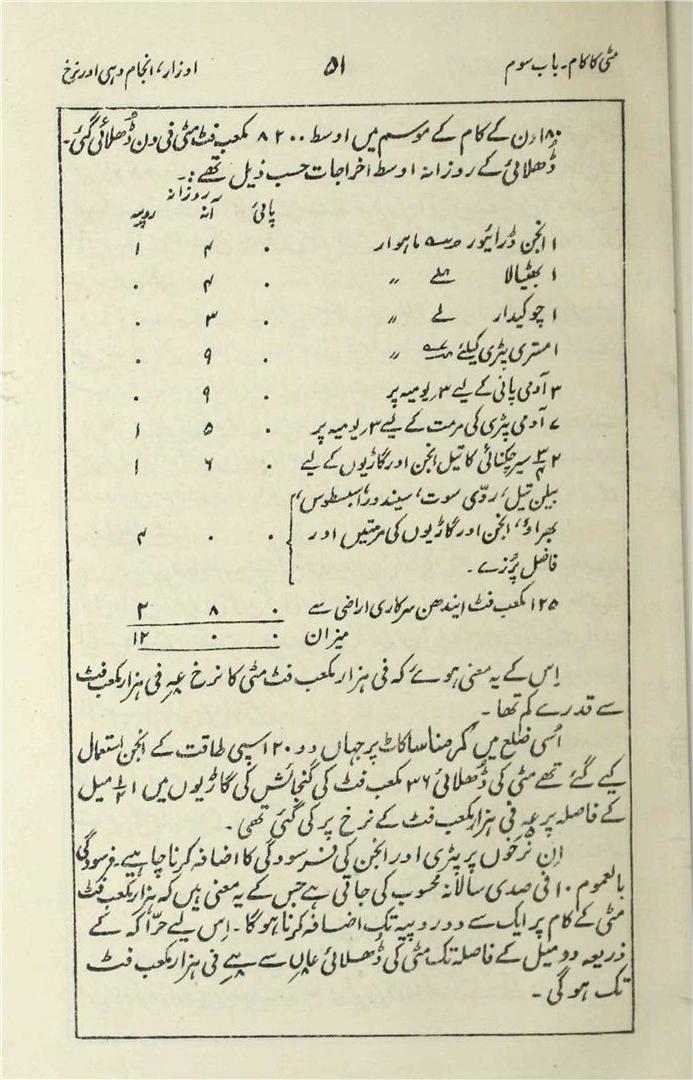 مٹی کا کام۔ باب سوم ۵۱ اوزار، انجام دہی اور نرخ
۱۸۰ دن کے کام کے موسم میں اوسط ۸۲۰۰ مکعب فٹ مٹی فی دن ڈُھلائی گئی۔
ڈُھلائی کے روزانہ اوسط اخراجات حسب ذیل تھے:۔
روزانہ
پائی آنہ روپیہ
۱ انجن ڈرائیور ماہوار ۰ ۴ ۱
۱ بھٹیالا " ۰ ۴ ۰
۱ چوکیدار " ۰ ۳ ۰
۱ مستری پٹری کیلئے " ۰ ۹ ۰
۳ آدمی پانی کے لیے ۳ر یومیہ پر ۰ ۹ ۰
۷ آدمی پٹری کی مرمت کے لیے ۳ر یومیہ پر ۰ ۵ ۱
۲ ۳/۴ سیر چکنائی کا تیل انجن اور گاڑیوں کے لیے ۰ ۶ ۱
بیلن تیل، ردّی سوت، سیندور، اسبسطوس،
بھراؤ، انجن اور گاڑیوں کی مرمتیں اور ۰ ۰ ۴
فاضل پُرزے۔
۱۲۵ مکعب فٹ ایندھن سرکاری اراضی سے ۰ ۸ ۲
میزان ۰ ۰ ۱۲
اِس کے یہ معنی ہوئے کہ فی ہزار مکعب فٹ مٹی کا نرخ فی ہزار مکعب فٹ
سے قدرے کم تھا۔
اُسی ضلع میں کرمناسا کاٹ پر جہاں دو ۲۰ اسپی طاقت کے انجن استعمال
کیے گئے تھے مٹی کی ڈُھلائی ۳۶ مکعب فٹ کی گنجائش کی گاڑیوں میں ۱ ۱/۲ میل
کے فاصلہ پر فی ہزار مکعب فٹ کے نرخ پر کی گئی تھی۔
اِن نرخوں پر پٹری اور انجن کی فرسودگی کا اضافہ کرنا چاہیے۔ فرسودگی
بالعموم ۱۰ فی صدی سالانہ محسوب کی جاتی ہے جس کے یہ معنی ہیں کہ ہزار مکعب فٹ
مٹی کے کام پر ایک سے دو روپیہ تک اضافہ کرنا ہوگا۔ اِس لیے حرّاکہ کے
ذریعہ دو میل کے فاصلہ تک مٹی کی ڈُھلائی سے فی ہزار مکعب فٹ
تک ہوگی۔